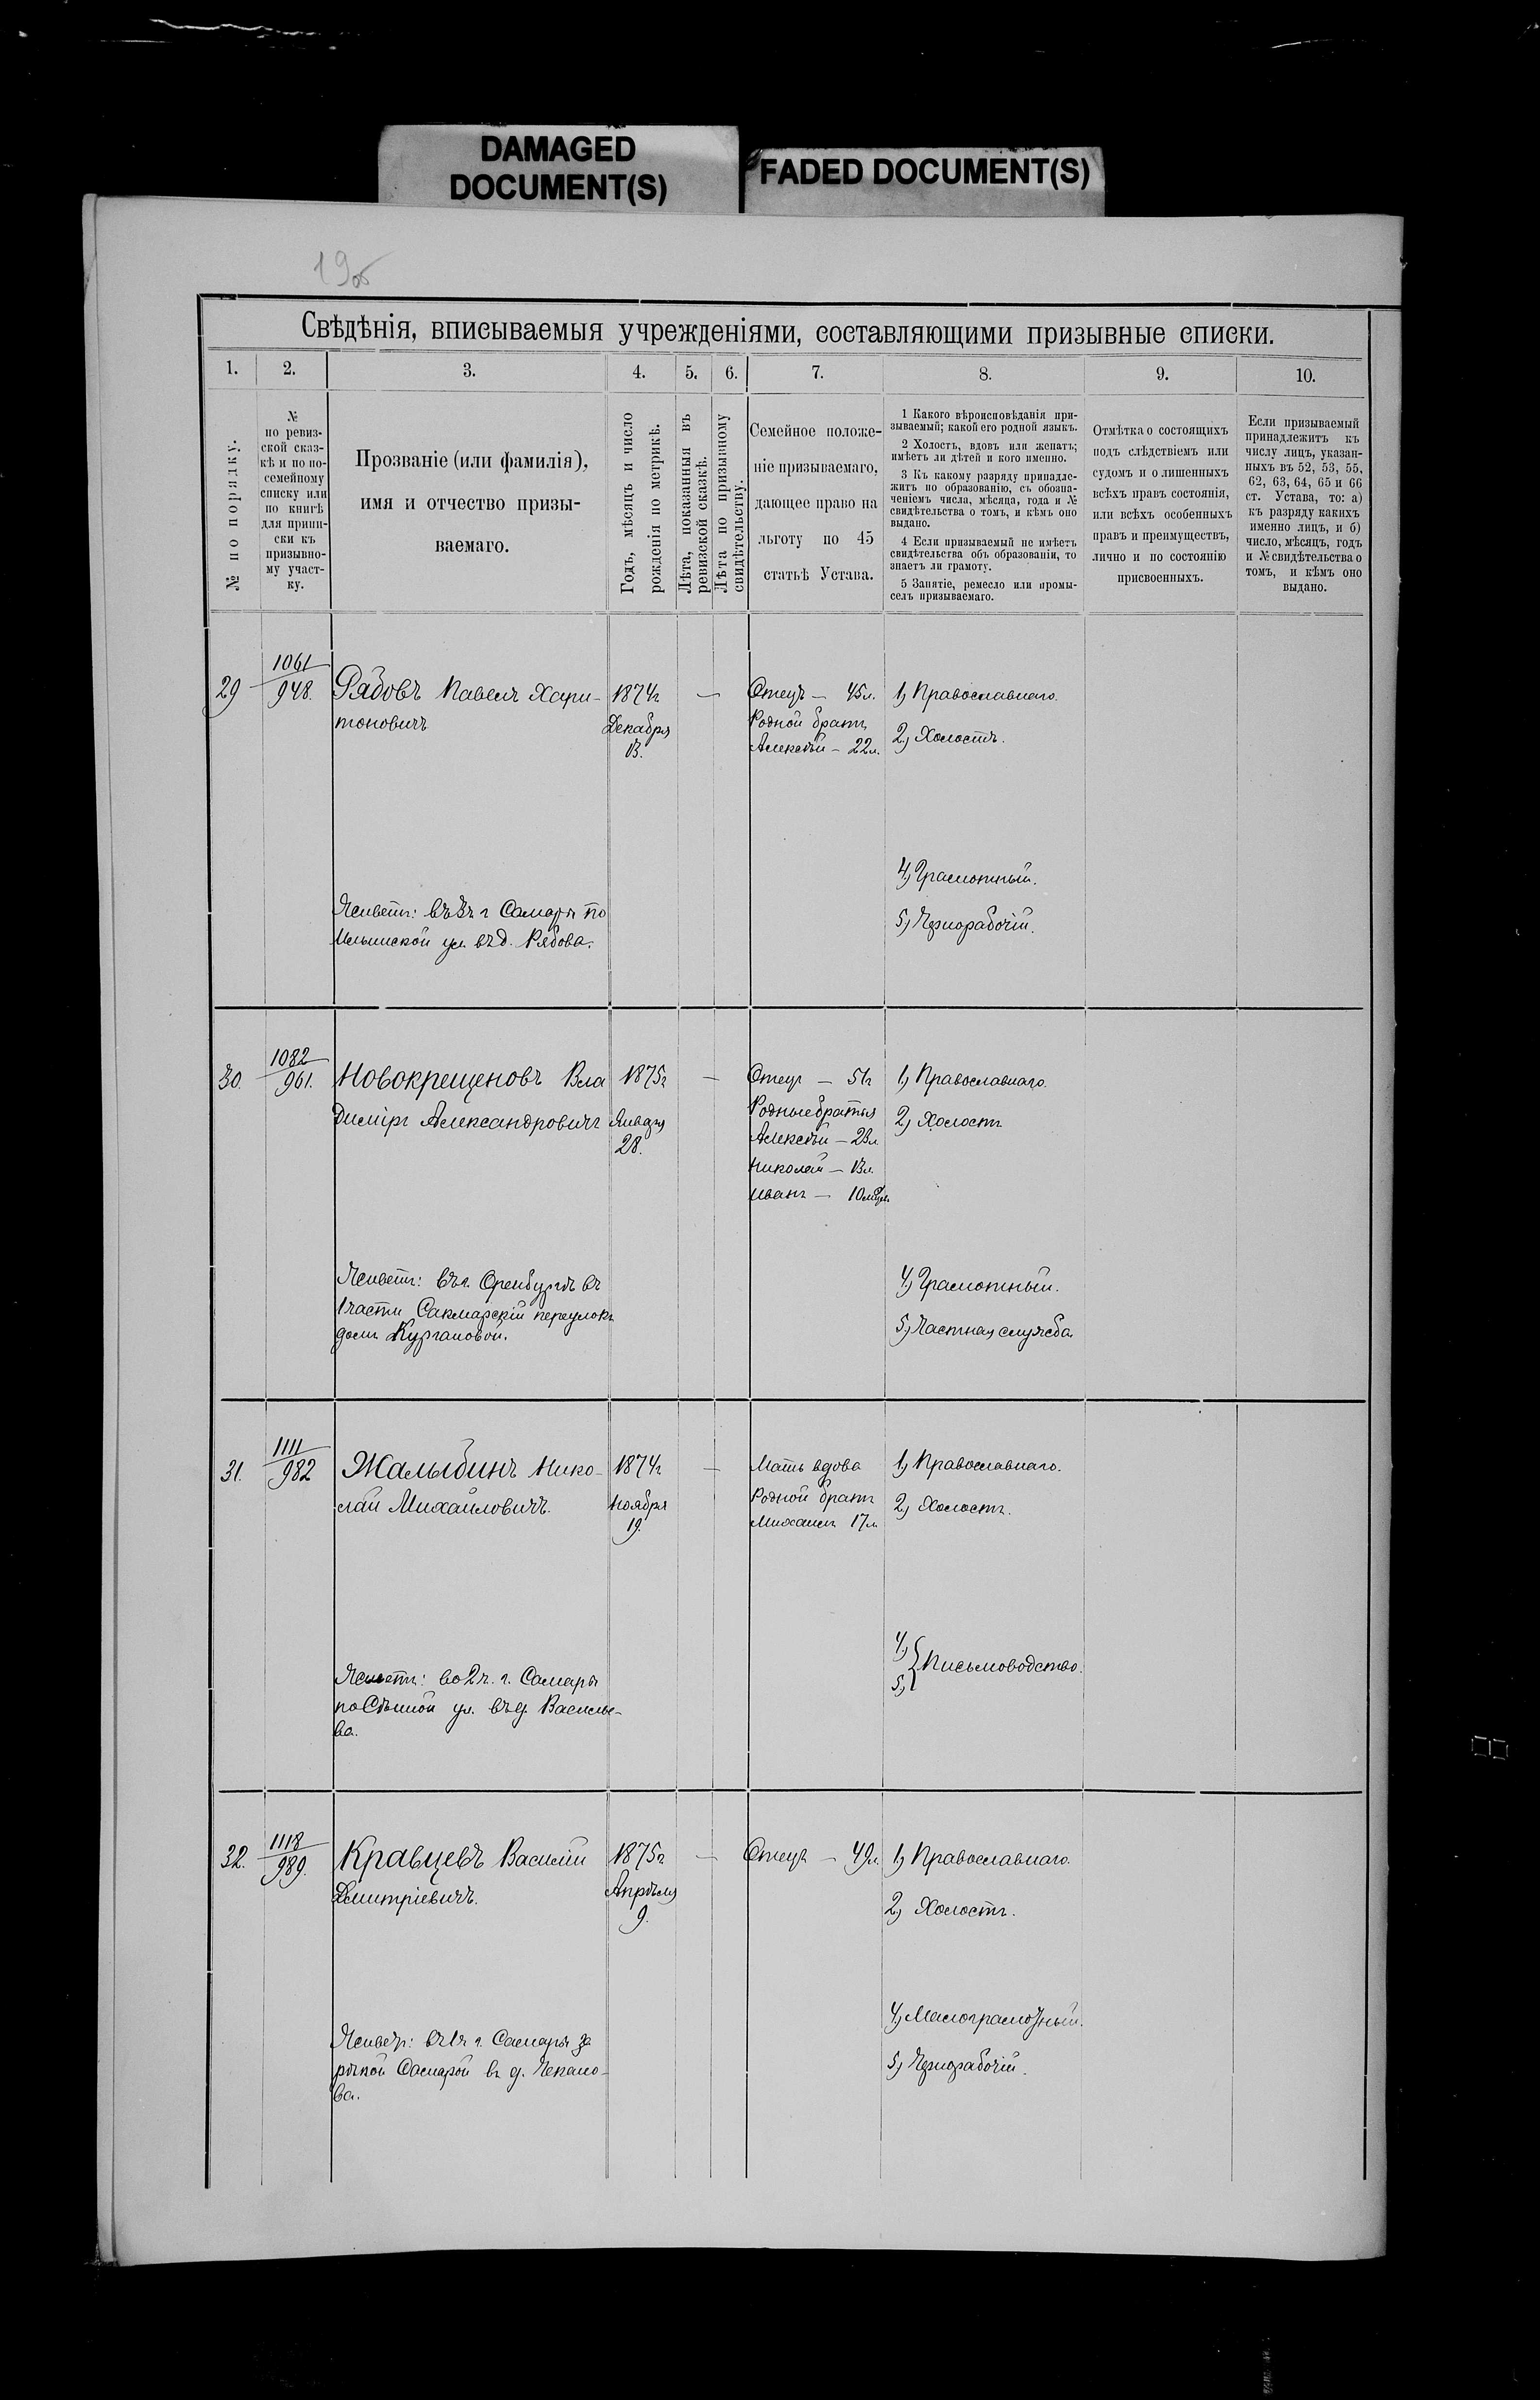 DAMAGED
DOCUMENT(S)
FADED DOCUMENT(S)
19об
Свѣдѣнія, вписываемыя учрежденіями, составляющими призывные списки.
1.
2.
3.
4.
5.
6.
7.
8.
9.
10.
№ по порядку.
№
по ревиз-
ской сказ-
кѣ и по по-
семейному
списку или
по книгѣ
для припи-
ски къ
призывно-
му участ-
ку.
Прозваніе (или фамилія),
имя и отчество призы-
ваемаго.
Годъ, мѣсяцъ и число
рожденія по метрикѣ.
Лѣта, показанныя въ
ревизской сказкѣ.
Лѣта по призывному
свидѣтельству.
Семейное положе-
ніе призываемаго,
дающее право на
льготу по 45
статьѣ Устава.
1 Какого вѣроисповѣданія при-
зываемый; какой его родной языкъ.
2 Холостъ, вдовъ или женатъ;
имѣетъ ли дѣтей и кого именно.
3 Къ какому разряду принадле-
житъ по образованію, съ обозна-
ченіемъ числа, мѣсяца, года и №
свидѣтельства о томъ, и кѣмъ оно
выдано.
4 Если призываемый не имѣетъ
свидѣтельства объ образованіи, то
знаетъ ли грамоту.
5 Занятіе, ремесло или промы-
селъ призываемаго.
Отмѣтка о состоящихъ
подъ слѣдствіемъ или
судомъ и о лишенныхъ
всѣхъ правъ состоянія,
или всѣхъ особенныхъ
правъ и преимуществъ,
лично и по состоянію
присвоенныхъ.
Если призываемый
принадлежитъ къ
числу лицъ, указан-
ныхъ въ 52, 53, 55,
62, 63, 64, 65 и 66
ст. Устава, то: а)
къ разряду какихъ
именно лицъ, и б)
число, мѣсяцъ, годъ
и № свидѣтельства о
томъ, и кѣмъ оно
выдано.
29
1061
948.
Рябовъ Павелъ Хари-
тоновичъ
1874г
Декабря
13.
—
Отецъ — 45л.
Родной братъ
Алексѣй — 22л.
1) Православнаго.
2) Холостъ.
4) Грамотный.
5) Чернорабочій.
Живетъ: въ 3ч г Самары по
Ильинской ул. въ д. Рябова.
30.
1082
961.
Новокрещеновъ Вла
диміръ Александровичъ
1875г
Января
28.
—
Отецъ — 51г
Родные братья
Алексѣй — 23л.
Николай — 13л.
Иванъ — 10мѣс.
1) Православнаго.
2) Холостъ
4) Грамотный.
5) Частная служба
Живетъ: въ г. Оренбургѣ въ
1 части Сакмарскій переулокъ
домъ Кургановой.
31.
1111
982
Жалыбинъ Нико-
лай Михайловичъ.
1874г
Ноября
19.
—
Мать вдова
Родной братъ
Михаилъ 17л.
1) Православнаго.
2) Холостъ.
4)
5) Письмоводство.
Живетъ: во 2ч. г. Самары
по Сѣнной ул. въ д. Василье-
ва.
32.
1118
989.
Кравцевъ Василій
Дмитріевичъ.
1875г.
Апрѣля
9.
—
Отецъ — 49л.
1) Православнаго.
2) Холостъ.
4) Малограмотный.
5) Чернорабочій.
Живетъ: въ 1ч г. Самары за
рѣкой Самарой въ д. Чекано-
ва.